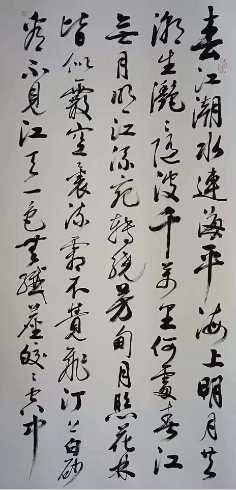 春江潮水連海平海上明月共
潮生灩〻隨波千萬里何處春江
無月明江流宛轉繞芳甸月照花林
皆似霰空裏流霜不覺飛汀上白沙
看不見江天一色無纖塵皎〻空中